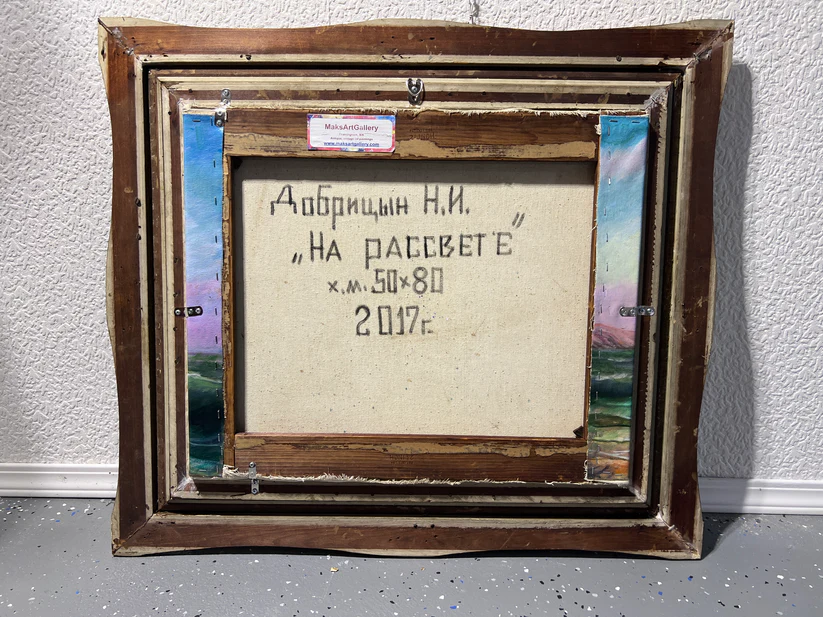 MaksArtGallery
www.maksartgallery.com
Добрицын Н.И.
„На рассвете"
х.м. 50×80
2017г.